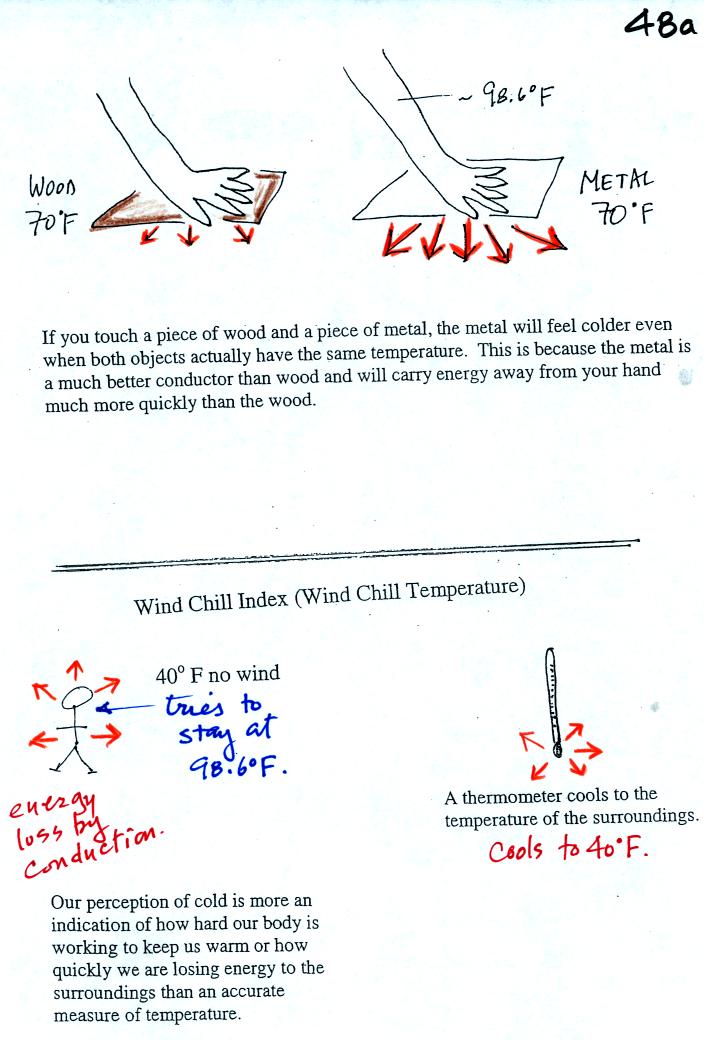 48a
~ 98.6°F
WOOD
70°F
METAL
70°F
If you touch a piece of wood and a piece of metal, the metal will feel colder even
when both objects actually have the same temperature. This is because the metal is
a much better conductor than wood and will carry energy away from your hand
much more quickly than the wood.
Wind Chill Index (Wind Chill Temperature)
40° F no wind
tries to
stay at
98.6°F.
energy
loss by
conduction.
A thermometer cools to the
temperature of the surroundings.
Cools to 40°F.
Our perception of cold is more an
indication of how hard our body is
working to keep us warm or how
quickly we are losing energy to the
surroundings than an accurate
measure of temperature.